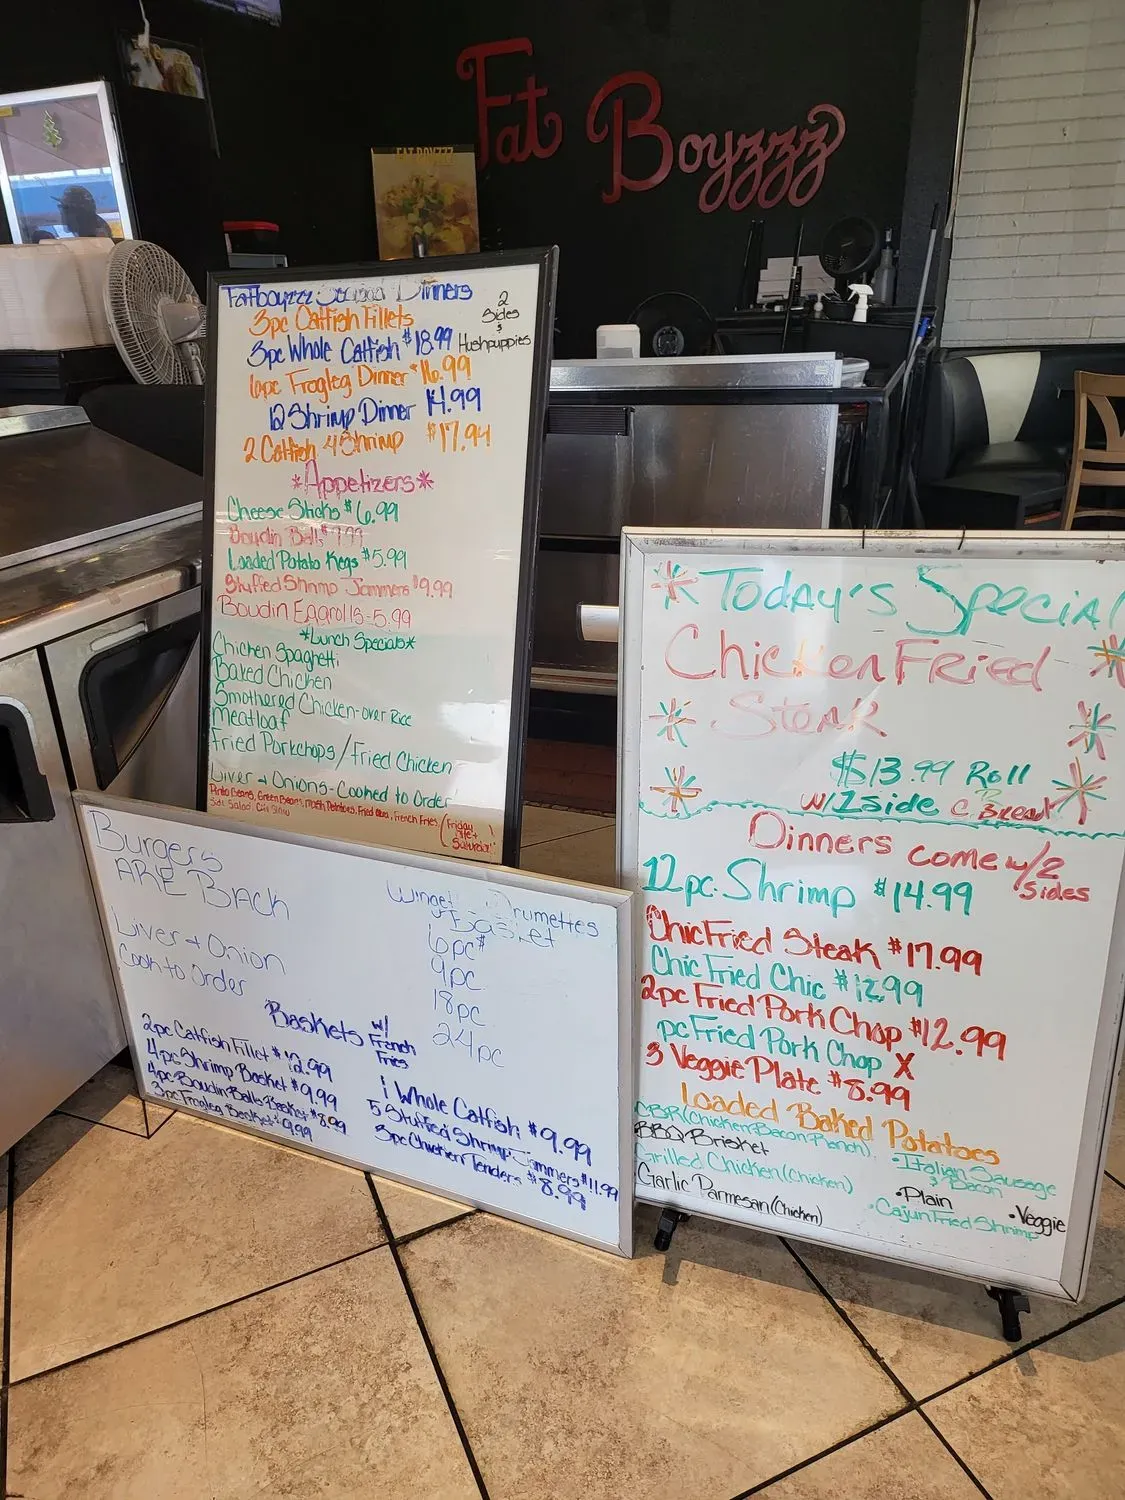 Fat Boyzzz
FAT BOYZZZ
Fatboyzzz Dinners
2 Sides & Hushpuppies
3pc Catfish Fillets
3pc Whole Catfish $18.99
6pc Frogleg Dinner $16.99
12 Shrimp Dinner 14.99
2 Catfish 4 Shrimp $17.94
*Appetizers*
Cheese Sticks $6.99
Boudin Balls $9.99
Loaded Potato Kegs $5.99
Stuffed Shrimp Jammers $9.99
Boudin Eggrolls-5.99
*Lunch Specials*
Chicken Spaghetti
Baked Chicken
Smothered Chicken-over Rice
Meatloaf
Fried Porkchops/Fried Chicken
Liver + Onions-Cooked to Order
Pinto Beans, Green Beans, Mash Potatoes, Fried Okra, French Fries
Side Salad,
(Friday
Saturday
Burgers
ARE BACK
Liver + Onion
Cook to Order
Drumettes
Basket
6pc $
9pc
18pc
24pc
Baskets w/ French Fries
2pc Catfish Fillet $12.99
4pc Shrimp Basket $9.99
4pc Boudin Balls Basket $8.99
3pc Frogleg Basket $9.99
1 Whole Catfish $9.99
5 Stuffed Shrimp Jammers $11.99
3pc Chicken Tenders $8.99
Today's Special
Chicken Fried
Steak
$13.99 Roll
w/1 side C Bread
Dinners come w/2
Sides
12pc. Shrimp $14.99
Chic Fried Steak $17.99
Chic Fried Chic $12.99
2pc Fried Pork Chop $12.99
pc Fried Pork Chop X
3 Veggie Plate $8.99
Loaded Baked Potatoes
CBR (Chicken Bacon Ranch)
BBQ Brisket
Grilled Chicken (Chicken)
Garlic Parmesan (Chicken)
•Italian Sausage
& Bacon
•Plain
•Veggie
•Cajun Fried Shrimp